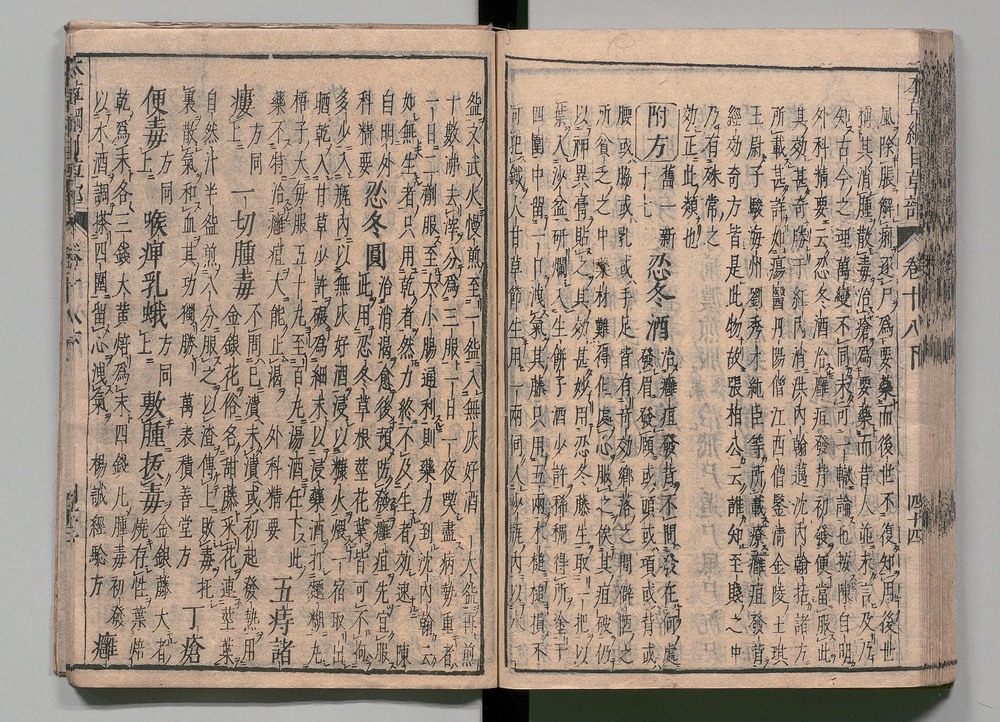 本草綱目草部　卷十八下　四十四
風除脹解痢逐尸為要藥而後世不復知用後世
稱其消腫散毒治瘡為要藥而昔人並未言及乃
知古今之理萬變不同未可一轍論也按陳自明
外科精要云忍冬酒治癰疽發背初發便當服此
其効甚奇勝于紅內消洪內翰邁沈內翰括諸方
所載甚詳如瘍醫丹陽僧江西僧鑒清金陵王琪
王尉子駿海州劉秀才純臣等所載療癰疽發背
經効奇方皆是此物故張相公云誰知至賤之中
乃有殊常之
効正此類也
附方　舊一新十七　忍冬酒　治癰疽發背不問發在何處
發眉發頤或頭或項或背或
腰或脇或乳或手足皆有奇効鄉落之間僻陋之
所貧乏之中藥材難得但虔心服之俟其疽破仍
以神異膏貼之其効甚妙用忍冬藤生取一把以
葉入砂盆研爛入生餅子酒少許稀稠得所塗于
四圍中留一口洩氣其藤只用五兩木槌槌損不
可犯鐵大甘草節生用一兩同入沙瓶內以水
盌文武火慢煎至一盌入無灰好酒一大盌再煎
十數沸去滓分為三服一日一夜喫盡病勢重者
一日二劑服至大小腸通利則藥力到沈內翰云
如無生者只用乾者然力終不及生者効速　陳
自明外科精要　忍冬圓　治消渴愈後預防發癰疽先宜服
此用忍冬草根莖花葉皆可不拘
多少入瓶內以無灰好酒浸以糠火煨一宿取出
晒乾入甘草少許碾為細末以浸藥酒打麪糊丸
梧子大每服五十丸至百丸湯酒任下此
藥不特治癰疽大能止渴　外科精要　五痔諸
瘻　方同上　一切腫毒　不問已潰未潰或初起發熱用
金銀花俗名甜藤采花連莖葉
自然汁半盌煎八分服之以渣傅上敗毒托
裏散氣和血其功獨勝　萬表積善堂方　丁瘡
便毒　方同上　喉痺乳蛾　方同上　敷腫拔毒　金銀藤大者
燒存性葉焙
乾為末各三錢大黃焙為末四錢凡腫毒初發
以水酒調搽四圍留心洩氣　楊誠經驗方　癰